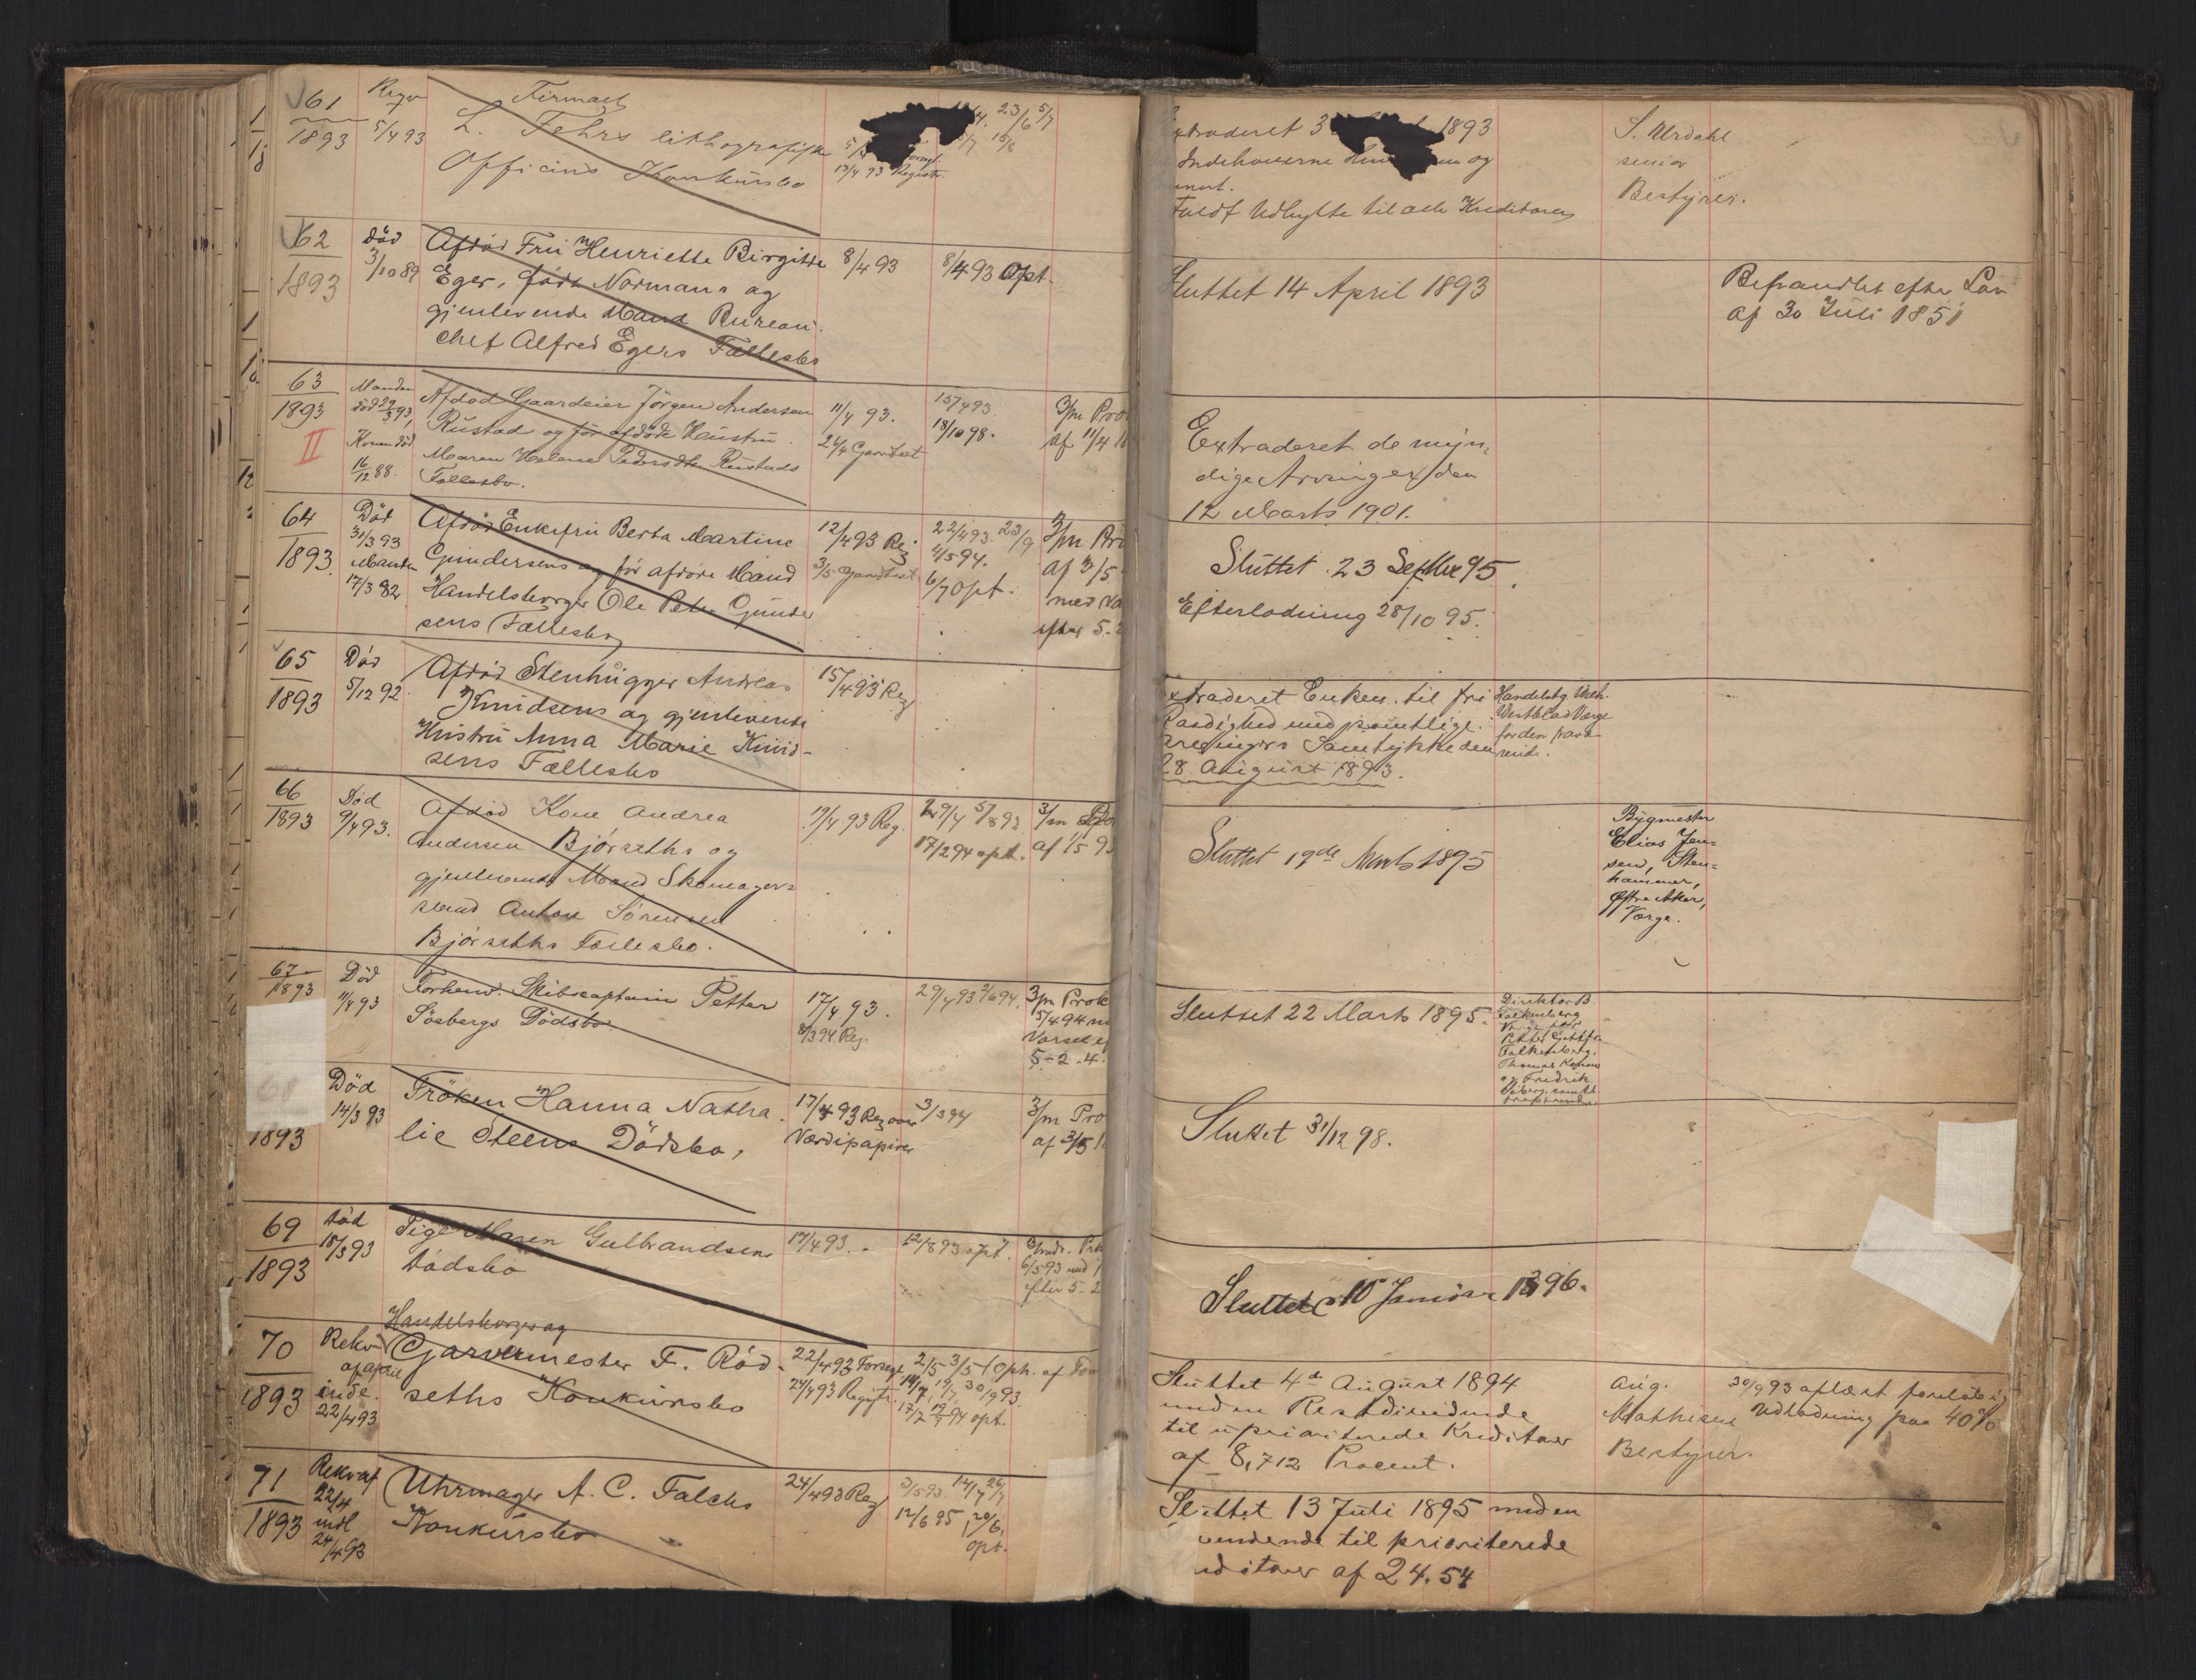 61
1893
5/4 93
Firmaet
L. Fehrs lithografiske
Officins Konkursbo
13/4 93 Registr.
23/6 5/7
1893
Indehaverne og
Fuldt Udbytte til alle Kreditorer
S. Urdahl
senior
Bestyrer.
62
1893
död
3/10 89
Afdöd Fru Henriette Birgitte
Eger, födt Normans og
gjenlevende Mand Bureau-
chef Alfred Egers Fællesbo
8/4 93
8/4 93 Opt.
Sluttet 14 April 1893
Behandlet efter Lov
af 30 Juli 1851
63
1893
II
Manden
död 29/3 93,
Konen död
16/12 88.
Afdöd Gaardeier Jörgen Andersen
Rustad og för afdöde Hustru
Maren Helene Pedersdtr Rustads
Fællesbo.
11/4 93.
24/4 Garnteret
15/4 93
18/10 98.
3/m Pro
af 11/4
Extraderet de myn-
dige Arvinger den
12 Marts 1901.
64
1893.
Död
31/3 93
Manden
17/3 82
Afdöd Enkefru Berta Martine
Gundersens og för afdöde Mand
Handelsborger Ole Peter Gunder
sens Fællesbo
12/4 93 Reg
3/5
22/4 93. 23/9
4/5 94.
6/7 Opt.
3/m Pro
af 3/5
med Va
efter 5-2
Sluttet 23 Septbr 95.
Efterlodning 28/10 95.
65
1893
Död
5/12 92.
Afdöd Stenhugger Andreas
Knudsens og gjenlevende
Hustru Anna Marie Knud-
sens Fællesbo
15/4 93 Reg
xtraderet Enken til fri
Raadighed med samtlige
Arvingers Samtykke den
28 August 1893.
Handelsbg. Math.
Westblad Værge
for den fravæ-
rende.
66
1893
Död
9/4 93.
Afdöd Kone Andrea
Andersen Björseths og
gjenlevende Mand Skomager-
svend Anton Sörensen
Björseths Fællesbo.
19/4 93 Reg.
29/4 5/8 93
17/2 94 opt.
3/m Pro
af 1/5 93
Sluttet 19de Marts 1895
Bygmester
Elias Jen-
sen, Sten-
hammer,
Östre Aker,
Værge.
67
1893
Död
11/4 93
Forhenv. Skibscaptain Petter
Söebergs Dödsbo
17/4 93.
8/3 94 Reg.
29/4 93 2/6 94.
3/m Prok
5/4 94 m
Varsel ef
5-2-4.
Sluttet 22 Marts 1895.
Direktör B.
Falkenberg
Værge for
Falkenberg,
Thomas
og Fredrik
68
1893
Död
14/3 93
Fröken Hanna Natha
lie Steens Dödsbo,
17/4 93 Reg over
Værdipapirer
3/3 94
3/m Pro
af 3/5
Sluttet 31/12 98.
69
1893
Död
15/3 93
Pige Maren Gulbrandsens
Dödsbo
17/4 93.
12/8 93 opt.
3/mdr. Prk
6/5 93 med
efter 5-2
Sluttet 10 Januar 1896.
70
1893
Rekv
af april
inde.
22/4 93
Handelsborger og
Garvermester F. Röd-
seths Konkursbo
22/4 93 Forsegl.
24/4 93 Registr.
2/5 3/5 (Oph. af For
30/9 93.
17/7 19/7 94 opt.
Sluttet 4de August 1894
med en Restdividende
til uprioriterede Kreditorer
af 8,712 Procent.
Aug.
Mathisen
Bestyrer.
30/9 93 aflært forelöbig
Udlodning paa 40%
71
1893
Rekv af
22/4
indl
24/4 93
Uhrmager A. C. Falchs
Konkursbo
24/4 93 Reg
3/5 93. 14/7
12/6 95, 20/6,
opt.
Sluttet 13 Juli 1895 med en
vendende til prioriterede
ditorer af 24.54